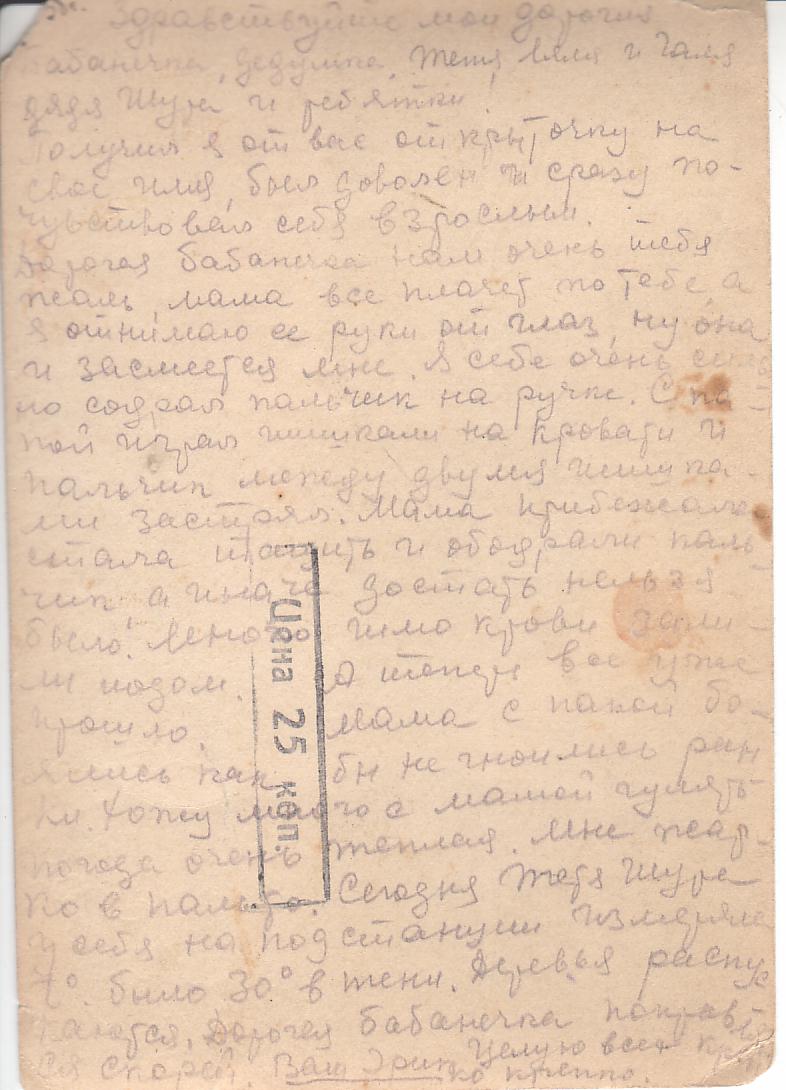 Здравствуйте мои дорогия
бабанечка, дедушка, тетя Ляля и Галя
дядя Шура и ребятки!
Получил я от вас открыточку на
свое имя, был доволен и сразу по-
чувствовал себя взрослым.
Дорогая бабанечка нам очень тебя
жаль, мама все плачет по тебе, а
я отнимаю ее руки от глаз, ну она
и засмеется мне. Я себе очень силь
но содрал пальчик на ручке. С па-
пой играл шишками на кровати и
пальчик между двумя шишка-
ми застрял. Мама прибежала
стала тащить и ободрали паль
чик а иначе достать нельзя
было. Много шло крови зали-
ли иодом. А теперь все уже
прошло. Мама с папой бо-
ялись как бы не гноились ран
ки. Хожу много с мамой гулять
погода очень теплая. Мне жар-
ко в пальто. Сегодня тетя Шура
у себя на подстанции измеряла
t°. было 30° в тени. Деревья распус
каются. Дорогая бабанечка поправляй
ся скорей. Ваш Эрик
Целую всех креп
ко крепко.
Цена 25 коп.